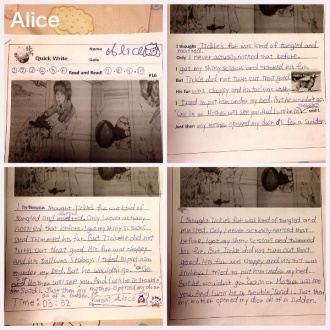 Alice
Name alice
Quick Write
Date
Read and Read!
#16
I thought Tickle's fur was kind of tangled and
matted.
Only I never actually noticed that before.
I got my shiny scissors and trimmed his fur.
But Tickle did not turn out that good.
His fur was choppy and his tail was
I tried to put him under my bed. But he wouldn't go.
Go in or Mother will see you and I will be in
said I
Just then my mother opened my door all of a sudden.
I thought Tickle's fur was kind of
tangled and Only I never actually
noticed that before. I got my shiny scissors
and trimmed his fur. But Tickle did not
turn out that good. His fur was choppy
and his tail was I tried to put him
under my bed. But he wouldn't go. Go
in or Mother will see you and I will be in trouble
said I. Just then my mother opened my door
all of a sudden.
Time: 03:32
alice
I thought Tickle's fur was kind of tangled and
matted. Only I never actually noticed that
before. I got my shiny scissors and trimmed
his fur. But Tickle did not turn out that
good. His fur was choppy and his tail was
I tried to put him under my bed.
But he wouldn't go. Go in or Mother will see
you and I will be in trouble, said I. Just then my
mother opened my door all of a sudden.